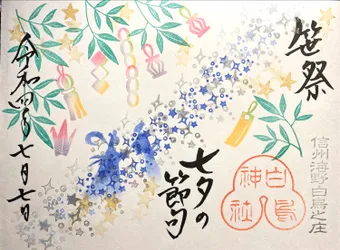 笹祭
信州海野白鳥之庄
七夕の節句
白鳥神社
令和四年七月七日